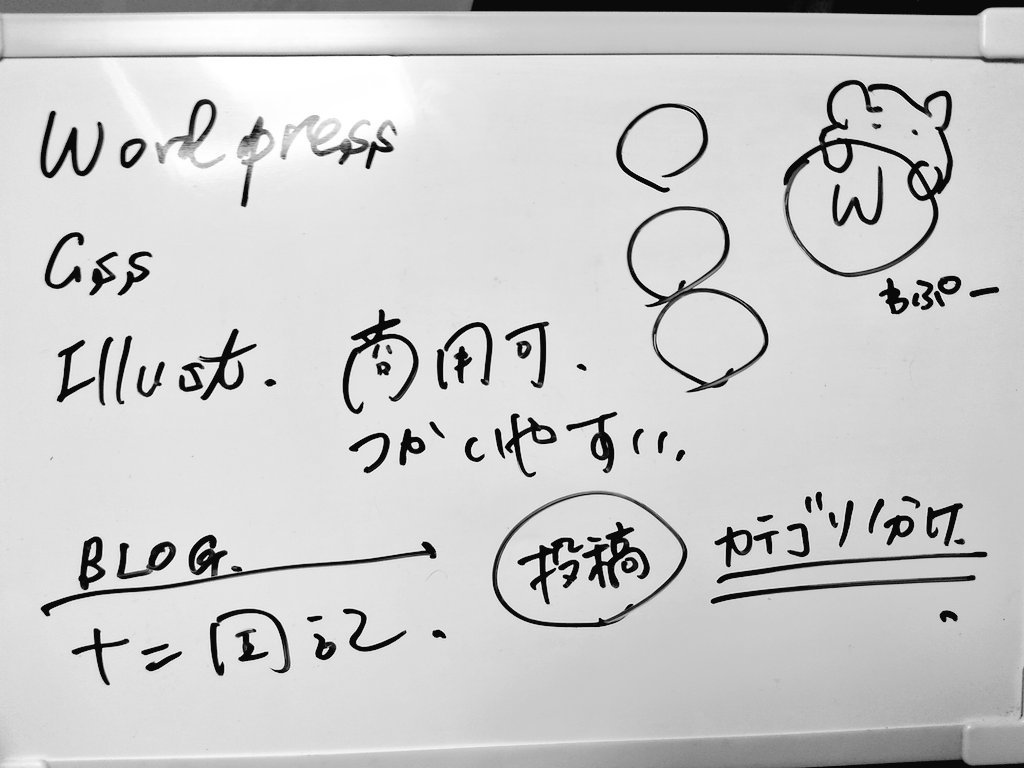 Wordpress
Css
Illust. 商用可.
つかいやすい.
W
もぷー
BLOG.
十二国記.
投稿
カテゴリ分け